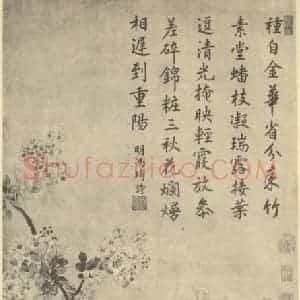 種自金華省分來竹
素堂蟠枝凝瑞靄接葉
逗清光掩映輕霞放參
差碎錦粧三秋花爛熳
相遲到重陽
Shufazidiao.COM